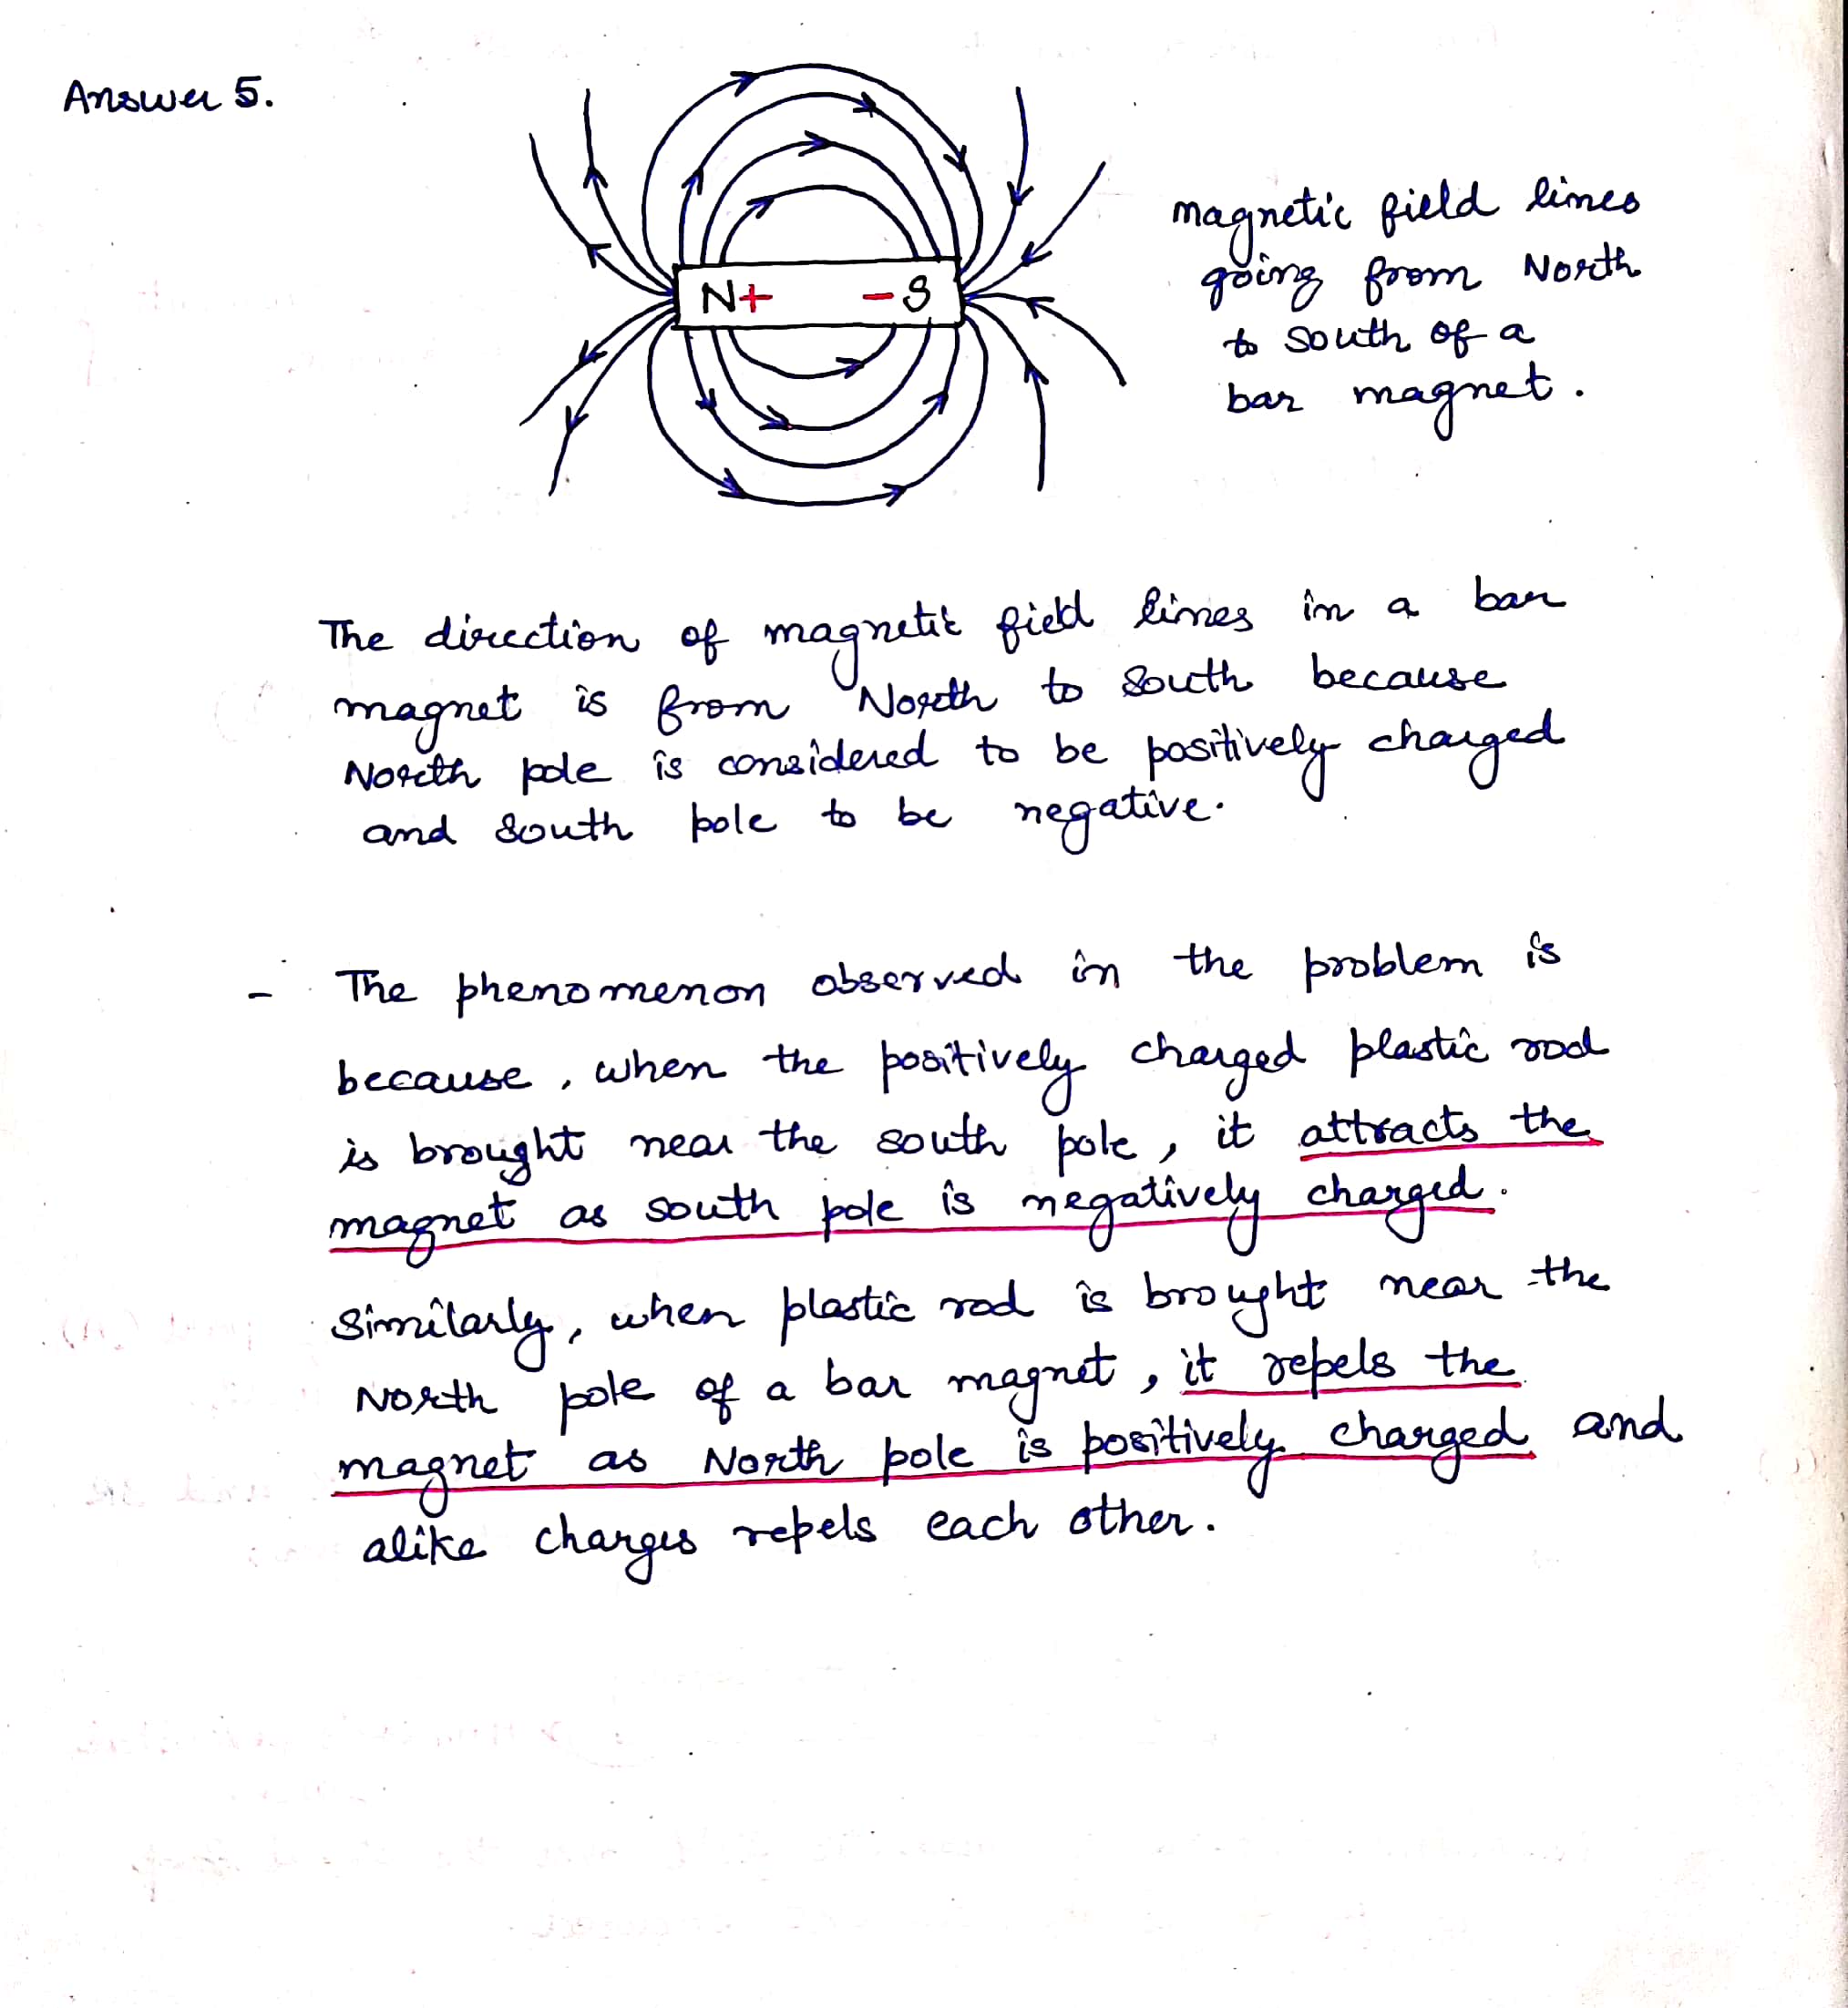 Answer 5.
N+ -S
magnetic field lines
going from North
to south of a
bar magnet.
The direction of magnetic field lines in a bar
magnet is from North to south because
North pole is considered to be positively charged
and south pole to be negative.
- The phenomenon observed in the problem is
because, when the positively charged plastic rod
is brought near the south pole, it attracts the
magnet as south pole is negatively charged.
Similarly, when plastic rod is brought near the
North pole of a bar magnet, it repels the
magnet as North pole is positively charged and
alike charges repels each other.